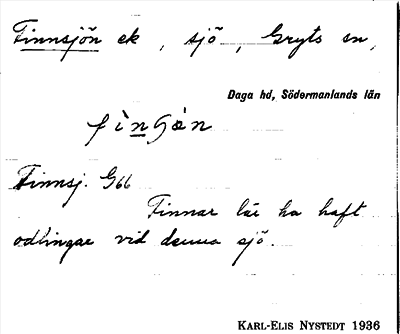 Finnsjön ek, sjö, Gryts sn,
Daga hd, Södermanlands län
fìnʃȧn
Finnsj. G66
Finnar lär ha haft
odlingar vid denna sjö.
KARL-ELIS NYSTEDT 1936